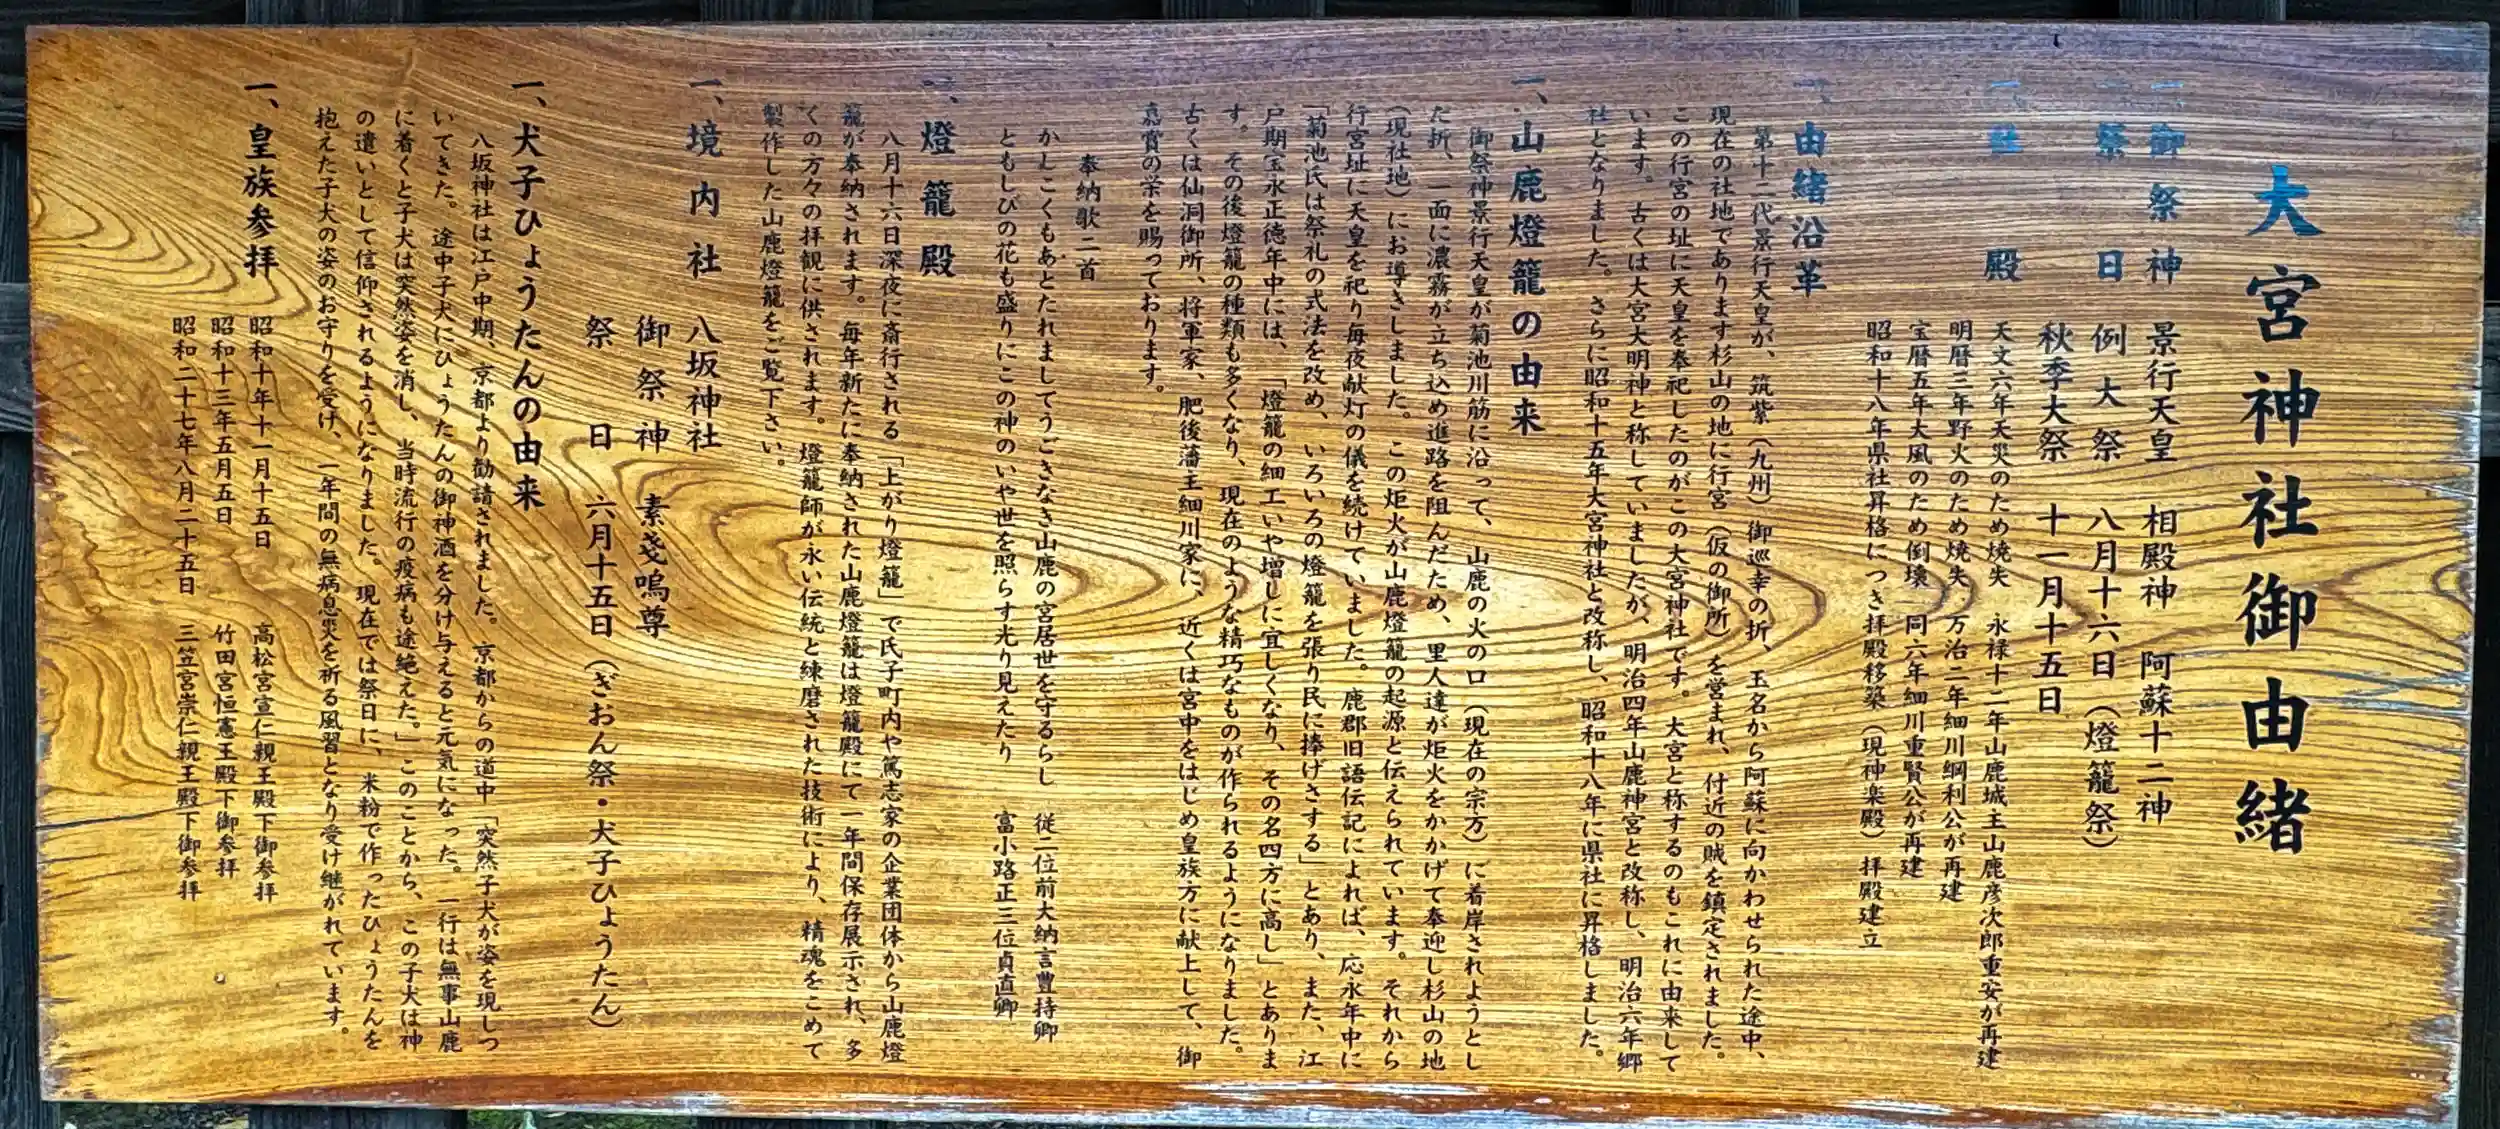 大宮神社御由緒
一、御祭神 景行天皇 相殿神 阿蘇十二神
一、祭日 例大祭 八月十六日(燈籠祭)
秋季大祭 十一月十五日
一、社殿 天文六年天災のため焼失 永禄十二年山鹿城主山鹿彦次郎重安が再建
明暦三年野火のため焼失 万治二年細川綱利公が再建
宝暦五年大風のため倒壊 同六年細川重賢公が再建
昭和十八年県社昇格につき拝殿移築(現神楽殿) 拝殿建立
一、由緒沿革
第十二代景行天皇が、筑紫(九州)御巡幸の折、玉名から阿蘇に向かわせられた途中、
現在の社地であります杉山の地に行宮(仮の御所)を営まれ、付近の賊を鎮定されました。
この行宮の址に天皇を奉祀したのがこの大宮神社です。大宮と称するのもこれに由来して
います。古くは大宮大明神と称していましたが、明治四年山鹿神宮と改称し、明治六年郷
社となりました。さらに昭和十五年大宮神社と改称し、昭和十八年に県社に昇格しました。
一、山鹿燈籠の由来
御祭神景行天皇が菊池川筋に沿って、山鹿の火の口(現在の宗方)に着岸されようとし
た折、一面に濃霧が立ち込め進路を阻んだため、里人達が炬火をかかげて奉迎し杉山の地
(現社地)にお導きしました。この炬火が山鹿燈籠の起源と伝えられています。それから
行宮址に天皇を祀り毎夜献灯の儀を続けていました。鹿郡旧語伝記によれば、応永年中に
「菊池氏は祭礼の式法を改め、いろいろの燈籠を張り民に捧げさする」とあり、また、江
戸期宝永正徳年中には、「燈籠の細工いや増しに宜しくなり、その名四方に高し」とありま
す。その後燈籠の種類も多くなり、現在のような精巧なものが作られるようになりました。
古くは仙洞御所、将軍家、肥後藩主細川家に、近くは宮中をはじめ皇族方に献上して、御
嘉賞の栄を賜っております。
奉納歌二首
かしこくもあとたれましてうごきなき山鹿の宮居世を守るらし 従二位前大納言豊持卿
ともしびの花も盛りにこの神のいや世を照らす光り見えたり 富小路正三位貞直卿
一、燈籠殿
八月十六日深夜に斎行される「上がり燈籠」で氏子町内や篤志家の企業団体から山鹿燈
籠が奉納されます。毎年新たに奉納された山鹿燈籠は燈籠殿にて一年間保存展示され、多
くの方々の拝観に供されます。燈籠師が永い伝統と練磨された技術により、精魂をこめて
製作した山鹿燈籠をご覧下さい。
一、境内社 八坂神社
御祭神 素戔嗚尊
祭日 六月十五日(ぎおん祭・犬子ひょうたん)
一、犬子ひょうたんの由来
八坂神社は江戸中期、京都より勧請されました。京都からの道中「突然子犬が姿を現しつ
いてきた。途中子犬にひょうたんの御神酒を分け与えると元気になった。一行は無事山鹿
に着くと子犬は突然姿を消し、当時流行の疫病も途絶えた。」このことから、この子犬は神
の遣いとして信仰されるようになりました。現在では祭日に、米粉で作ったひょうたんを
抱えた子犬の姿のお守りを受け、一年間の無病息災を祈る風習となり受け継がれています。
一、皇族参拝
昭和十年十一月十五日 高松宮宣仁親王殿下御参拝
昭和十三年五月五日 竹田宮恒憲王殿下御参拝
昭和二十七年八月二十五日 三笠宮崇仁親王殿下御参拝